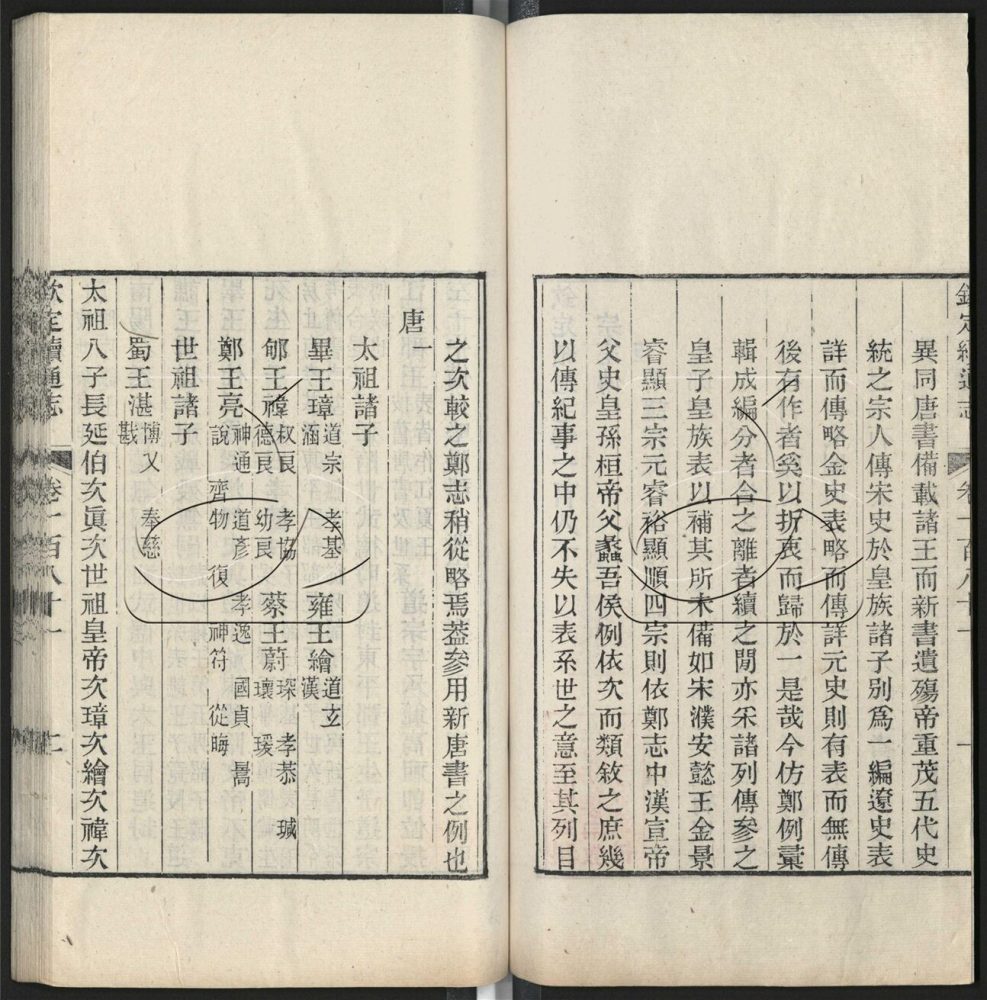 異同唐書備載諸王而新書遺殤帝重茂五代史
統之宗人傳宋史於皇族諸子別爲一編遼史表
詳而傳略金史表略而傳詳元史則有表而無傳
後有作者奚以折衷而歸於一是哉今仿鄭例彚
輯成編分者合之離者續之閒亦采諸列傳參之
皇子皇族表以補其所未備如宋濮安懿王金景
睿顯三宗元睿裕顯順四宗則依鄭志中漢宣帝
父史皇孫桓帝父蠡吾侯例依次而類敘之庶幾
以傳紀事之中仍不失以表系世之意至其列目
之次較之鄭志稍從略焉葢參用新唐書之例也
唐一
太祖諸子
畢王璋 道宗 涵 孝基 雍王繪 道玄 漢
郇王禕 叔良 德良 孝協 幼良 蔡王蔚 琛 瓌 孝恭 瑗 瑊
鄭王亮 神通 說 道彥 齊物 復 孝逸 神符 國貞 從晦 暠
世祖諸子
蜀王湛 博乂 戡 奉慈
太祖八子長延伯次眞次世祖皇帝次璋次繪次禕次
欽定續通志 卷一百八十一 二